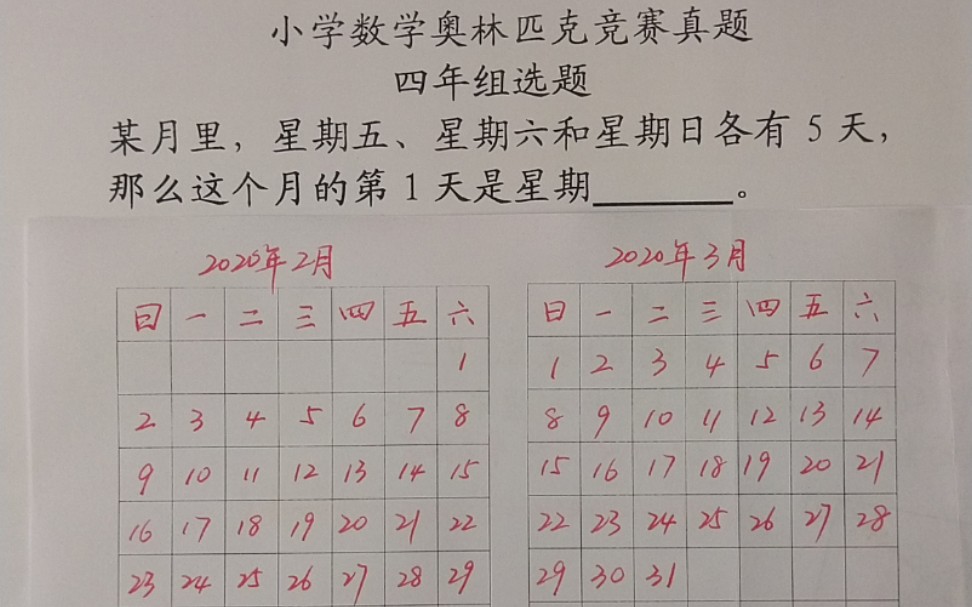 小学数学奥林匹克竞赛真题
四年组选题
某月里，星期五、星期六和星期日各有 5 天，
那么这个月的第 1 天是星期______。
2020年2月
日 一 二 三 四 五 六
1
2 3 4 5 6 7 8
9 10 11 12 13 14 15
16 17 18 19 20 21 22
23 24 25 26 27 28 29
2020年3月
日 一 二 三 四 五 六
1 2 3 4 5 6 7
8 9 10 11 12 13 14
15 16 17 18 19 20 21
22 23 24 25 26 27 28
29 30 31